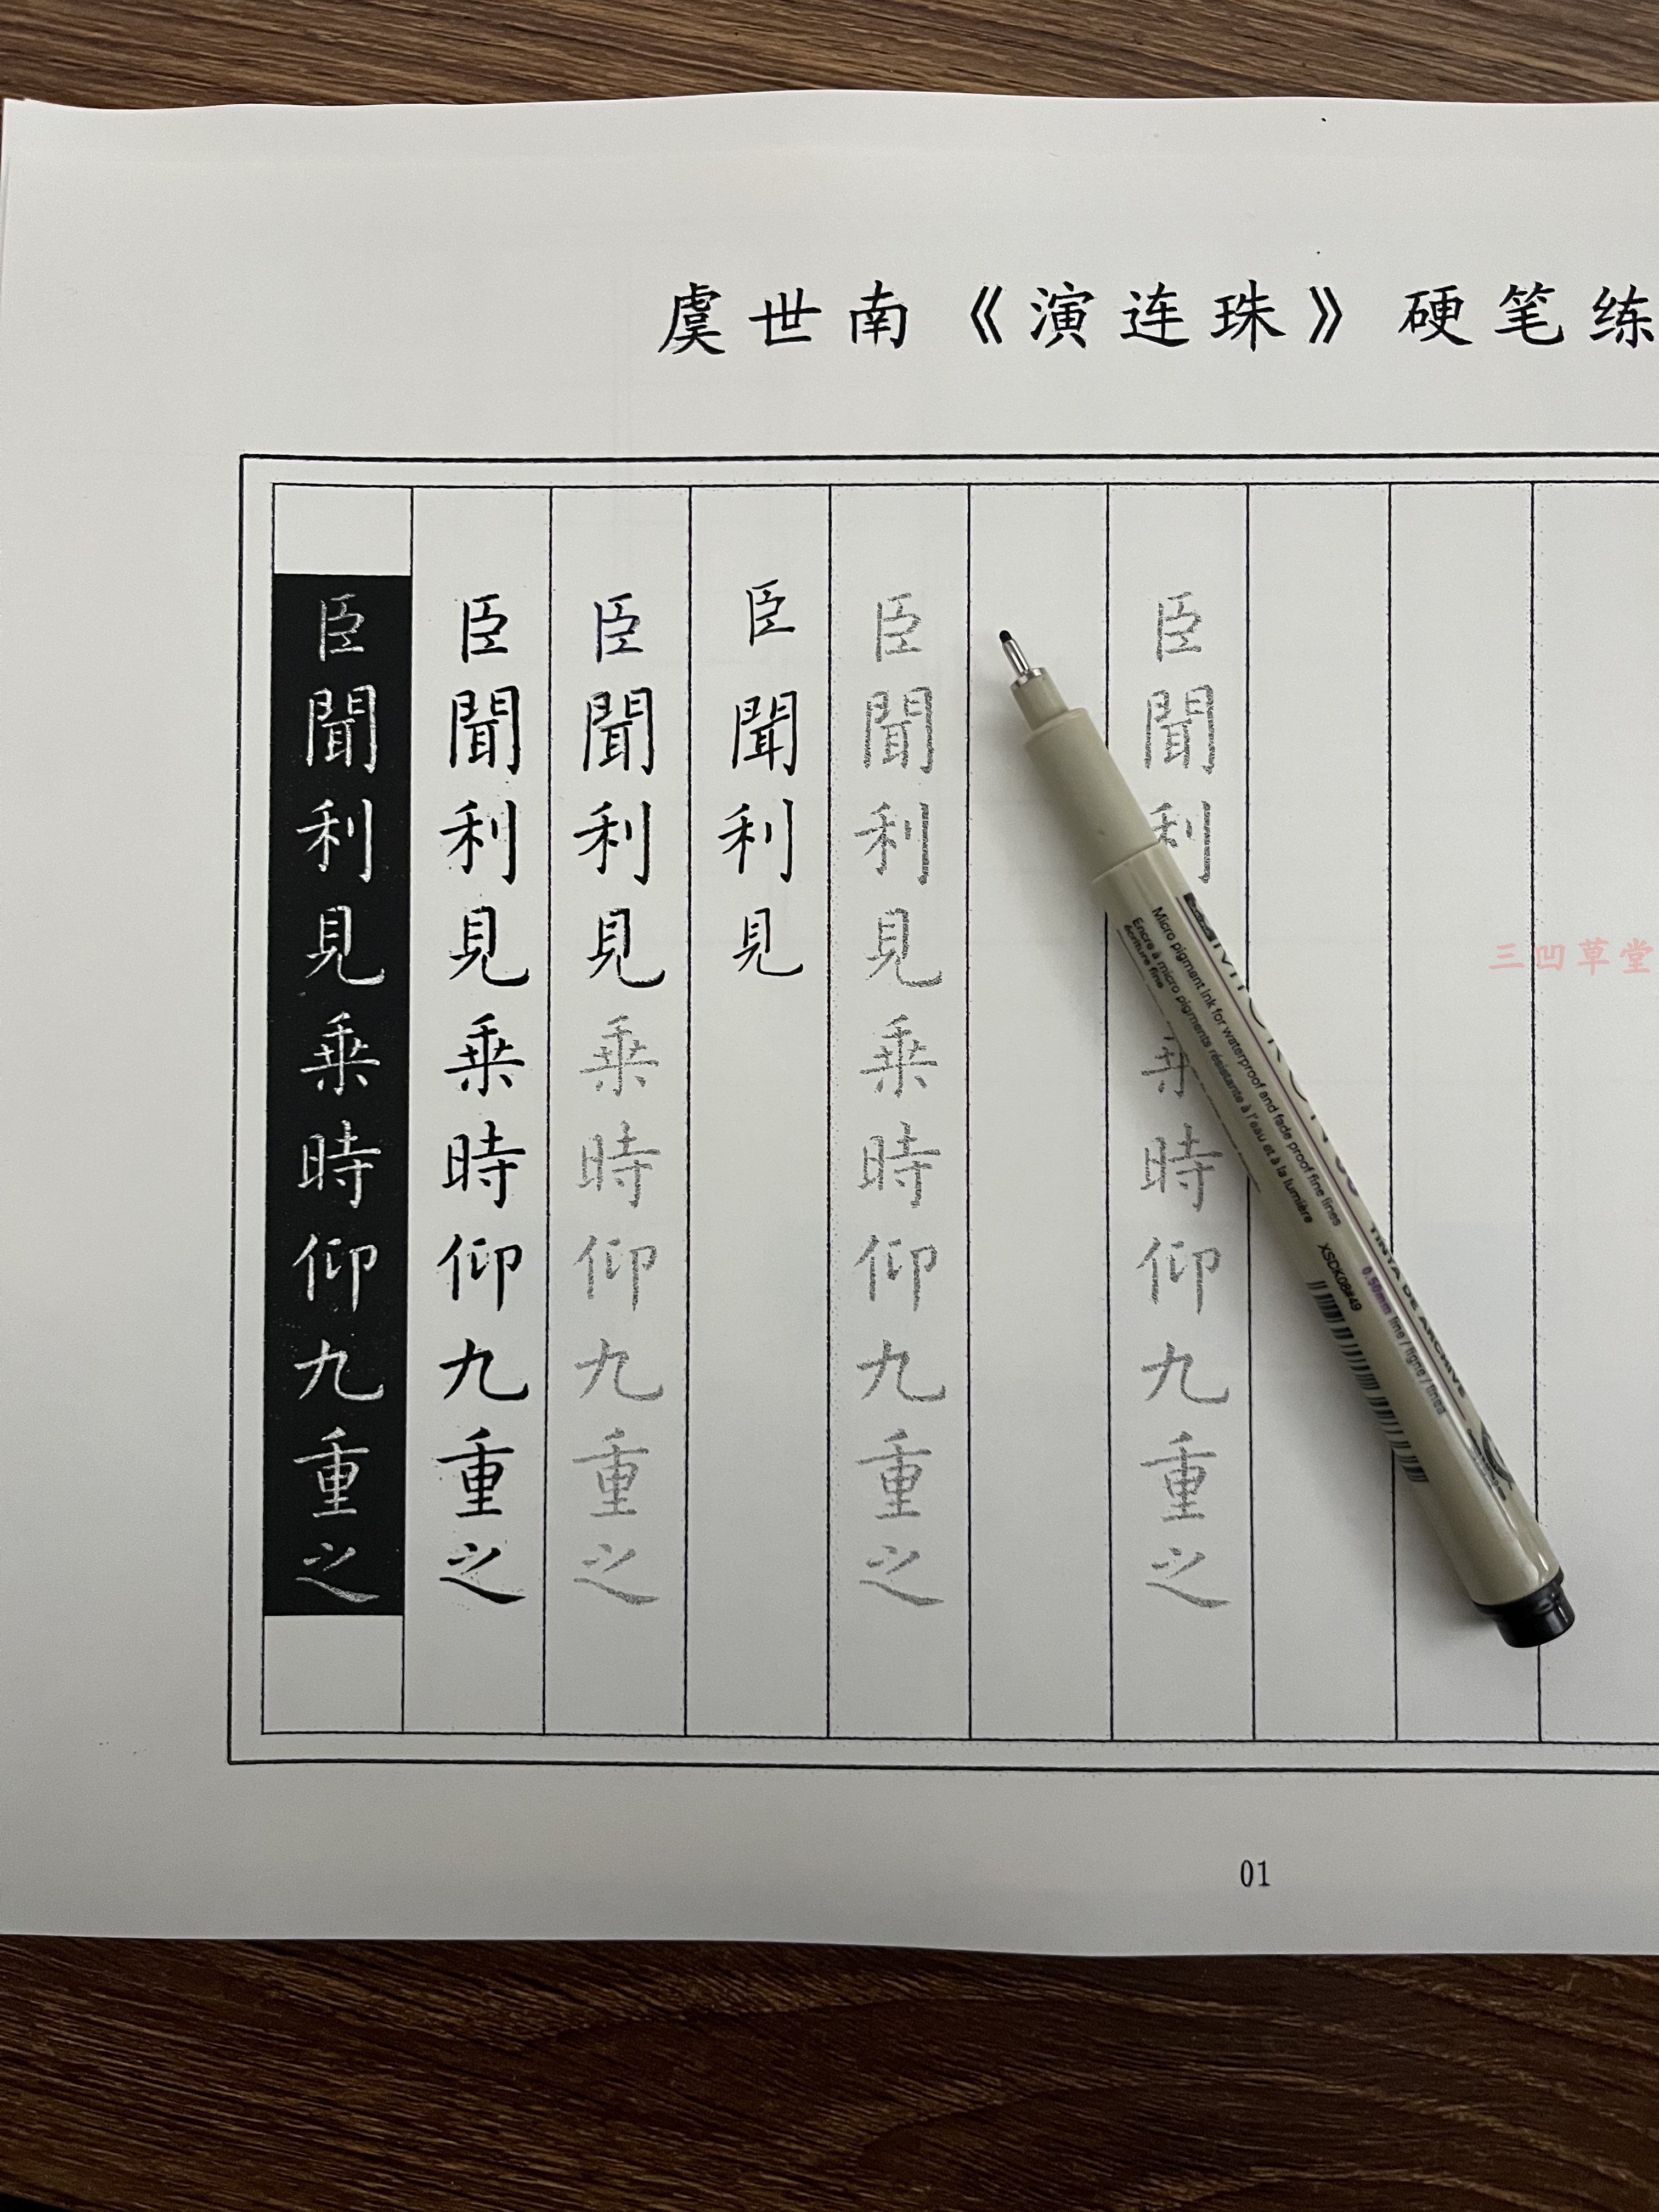 虞世南《演连珠》硬笔练
臣聞利見乗時仰九重之
臣聞利見乗時仰九重之
臣聞利見乗時仰九重之
臣聞利見
臣聞利見乗時仰九重之
臣聞利乗時仰九重之
Micro pigment ink for waterproof and fade proof fine lines
Encre à micro pigments résistante à l'eau et à la lumière
écriture fine
TINTA DE ARCHIVE
0.50mm line / ligne / linea
XSCK08#49
三凹草堂
01